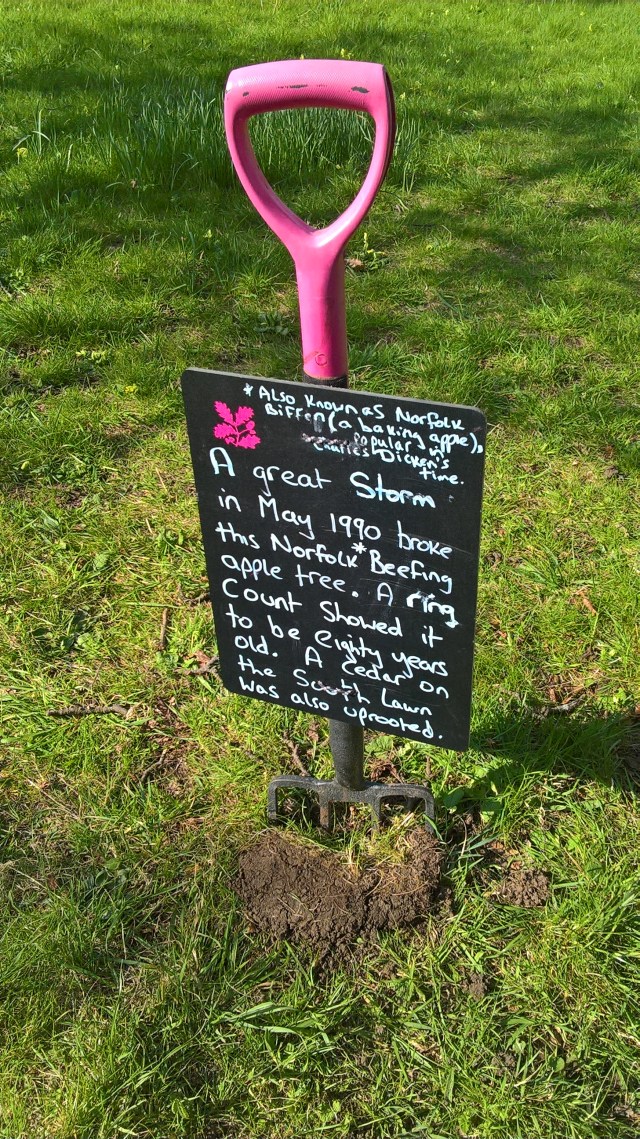 * Also known as Norfolk
Biffen (a baking apple),
Popular in
Charles Dicken's
time.
A great Storm
in May 1990 broke
this Norfolk * Beefing
apple tree. A ring
Count Showed it
to be eighty years
old. A cedar on
the South Lawn
was also uprooted.